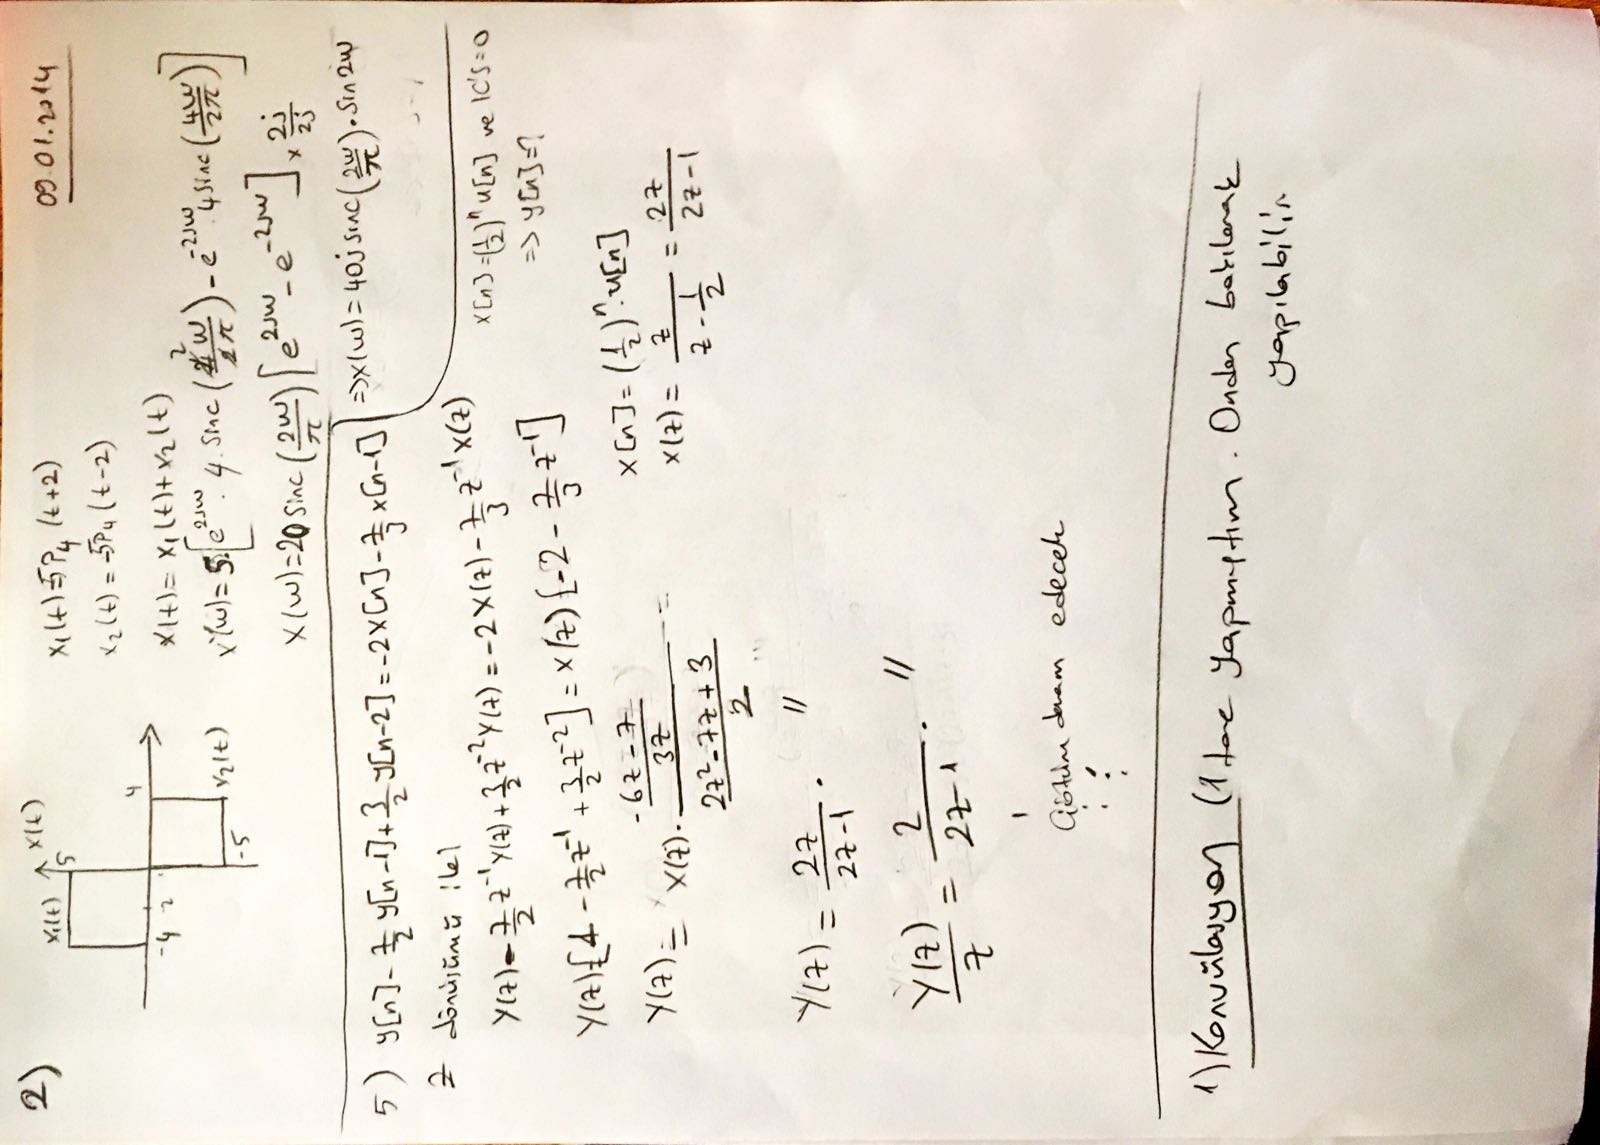 2)
09.01.2014
x₁(t)
x(t)
5
-4
-2
4
-5
x₂(t)
x₁(t)=5P₄(t+2)
x₂(t)=-5P₄(t-2)
x(t)=x₁(t)+x₂(t)
X(w)=5.[e^{2jw}.4.sinc(2w/π)-e^{-2jw}.4sinc(4w/2π)]
X(w)=20sinc(2w/π)[e^{2jw}-e^{-2jw}]x 2j/2j
=>X(w)=40j sinc(2w/π).sin2w
5) y[n]-7/2 y[n-1]+3/2 y[n-2]=-2x[n]-7/3 x[n-1]
z dönüşümü ile
x[n]=(1/2)ⁿu[n] ve IC'S=0
=> y[n]=?
Y(z)-7/2 z⁻¹Y(z)+3/2 z⁻²Y(z)=-2X(z)-7/3 z⁻¹X(z)
Y(z)[1-7/2 z⁻¹+3/2 z⁻²]=X(z)[-2-7/3 z⁻¹]
Y(z)= X(z).((-6z-7)/3z)/((2z²-7z+3)/2) =
x[n]=(1/2)ⁿ.u[n]
X(z)=z/(z-1/2)=2z/(2z-1)
Y(z)=2z/(2z-1). //
Y(z)/z=2/(2z-1). //
Çözüm devam edecek
1)Konvülasyon (1 tane yapmıştım. Ondan bakılarak
yapılabilir